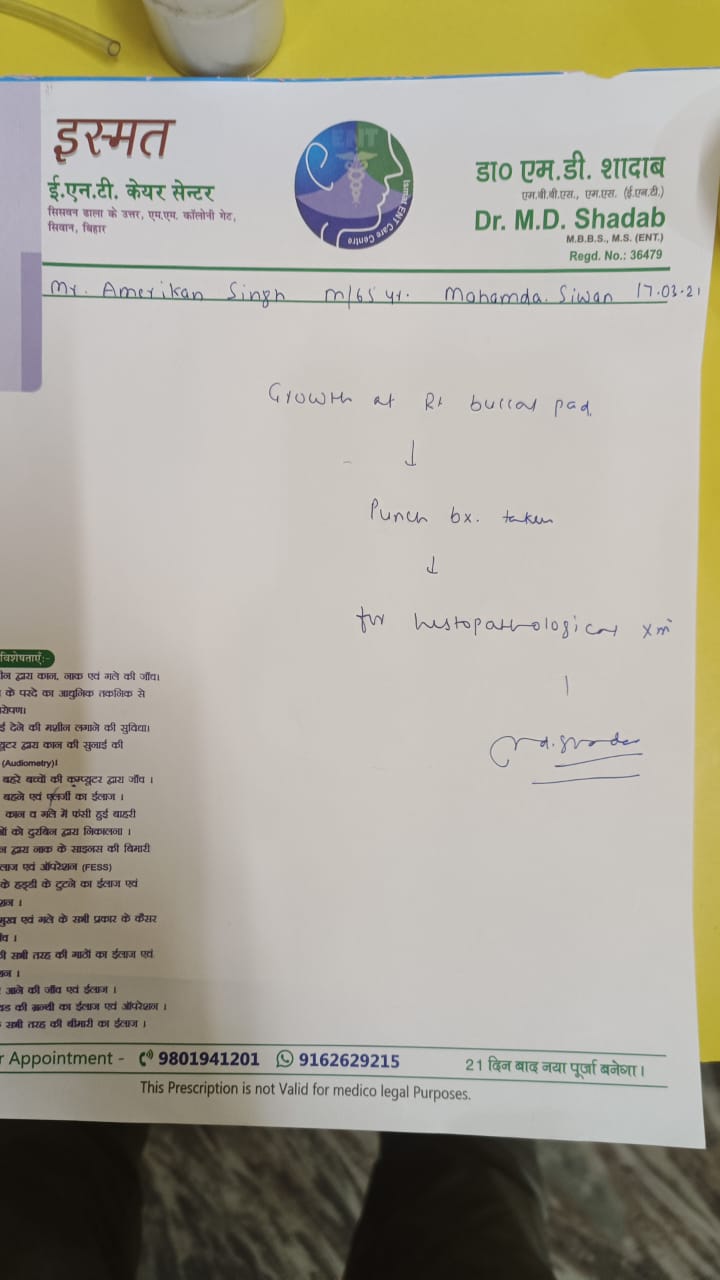 इस्मत
ई.एन.टी. केयर सेन्टर
सिसवन ढाला के उत्तर, एम.एम. कॉलोनी गेट,
सिवान, बिहार
ENT
Ismat ENT Care Centre
डा० एम.डी. शादाब
एम.बी.बी.एस., एम.एस. (ई.एन.टी.)
Dr. M.D. Shadab
M.B.B.S., M.S. (ENT.)
Regd. No.: 36479
Mr. Amerikan Singh m/65 yr. Mohamda. Siwan 17.03.21
Growth at Rt buccal pad.
↓
Punch bx. taken
↓
for histopathological xmn
विशेषताएँ:-
द्वारा कान, नाक एवं गले की जाँच।
के परदे का आधुनिक तकनिक से
रोपण।
देने की मशीन लगाने की सुविधा।
द्वारा कान की सुनाई की
(Audiometry)।
बहरे बच्चों की कम्प्यूटर द्वारा जाँच ।
बहने एवं एलर्जी का ईलाज ।
कान व गले में फंसी हुई बाहरी
को दुरबिन द्वारा निकालना ।
द्वारा नाक के साइनस की बिमारी
लाज एवं ऑपरेशन (FESS)
के हड्डी के टुटने का ईलाज एवं
शन ।
मुख एवं गले के सभी प्रकार के कैंसर
च ।
की सभी तरह की गाठों का ईलाज एवं
शन ।
आने की जाँच एवं ईलाज ।
की ग्रन्थी का ईलाज एवं ऑपरेशन ।
सभी तरह की बीमारी का ईलाज ।
r Appointment - 9801941201 9162629215
21 दिन बाद नया पूर्जा बनेगा।
This Prescription is not Valid for medico legal Purposes.